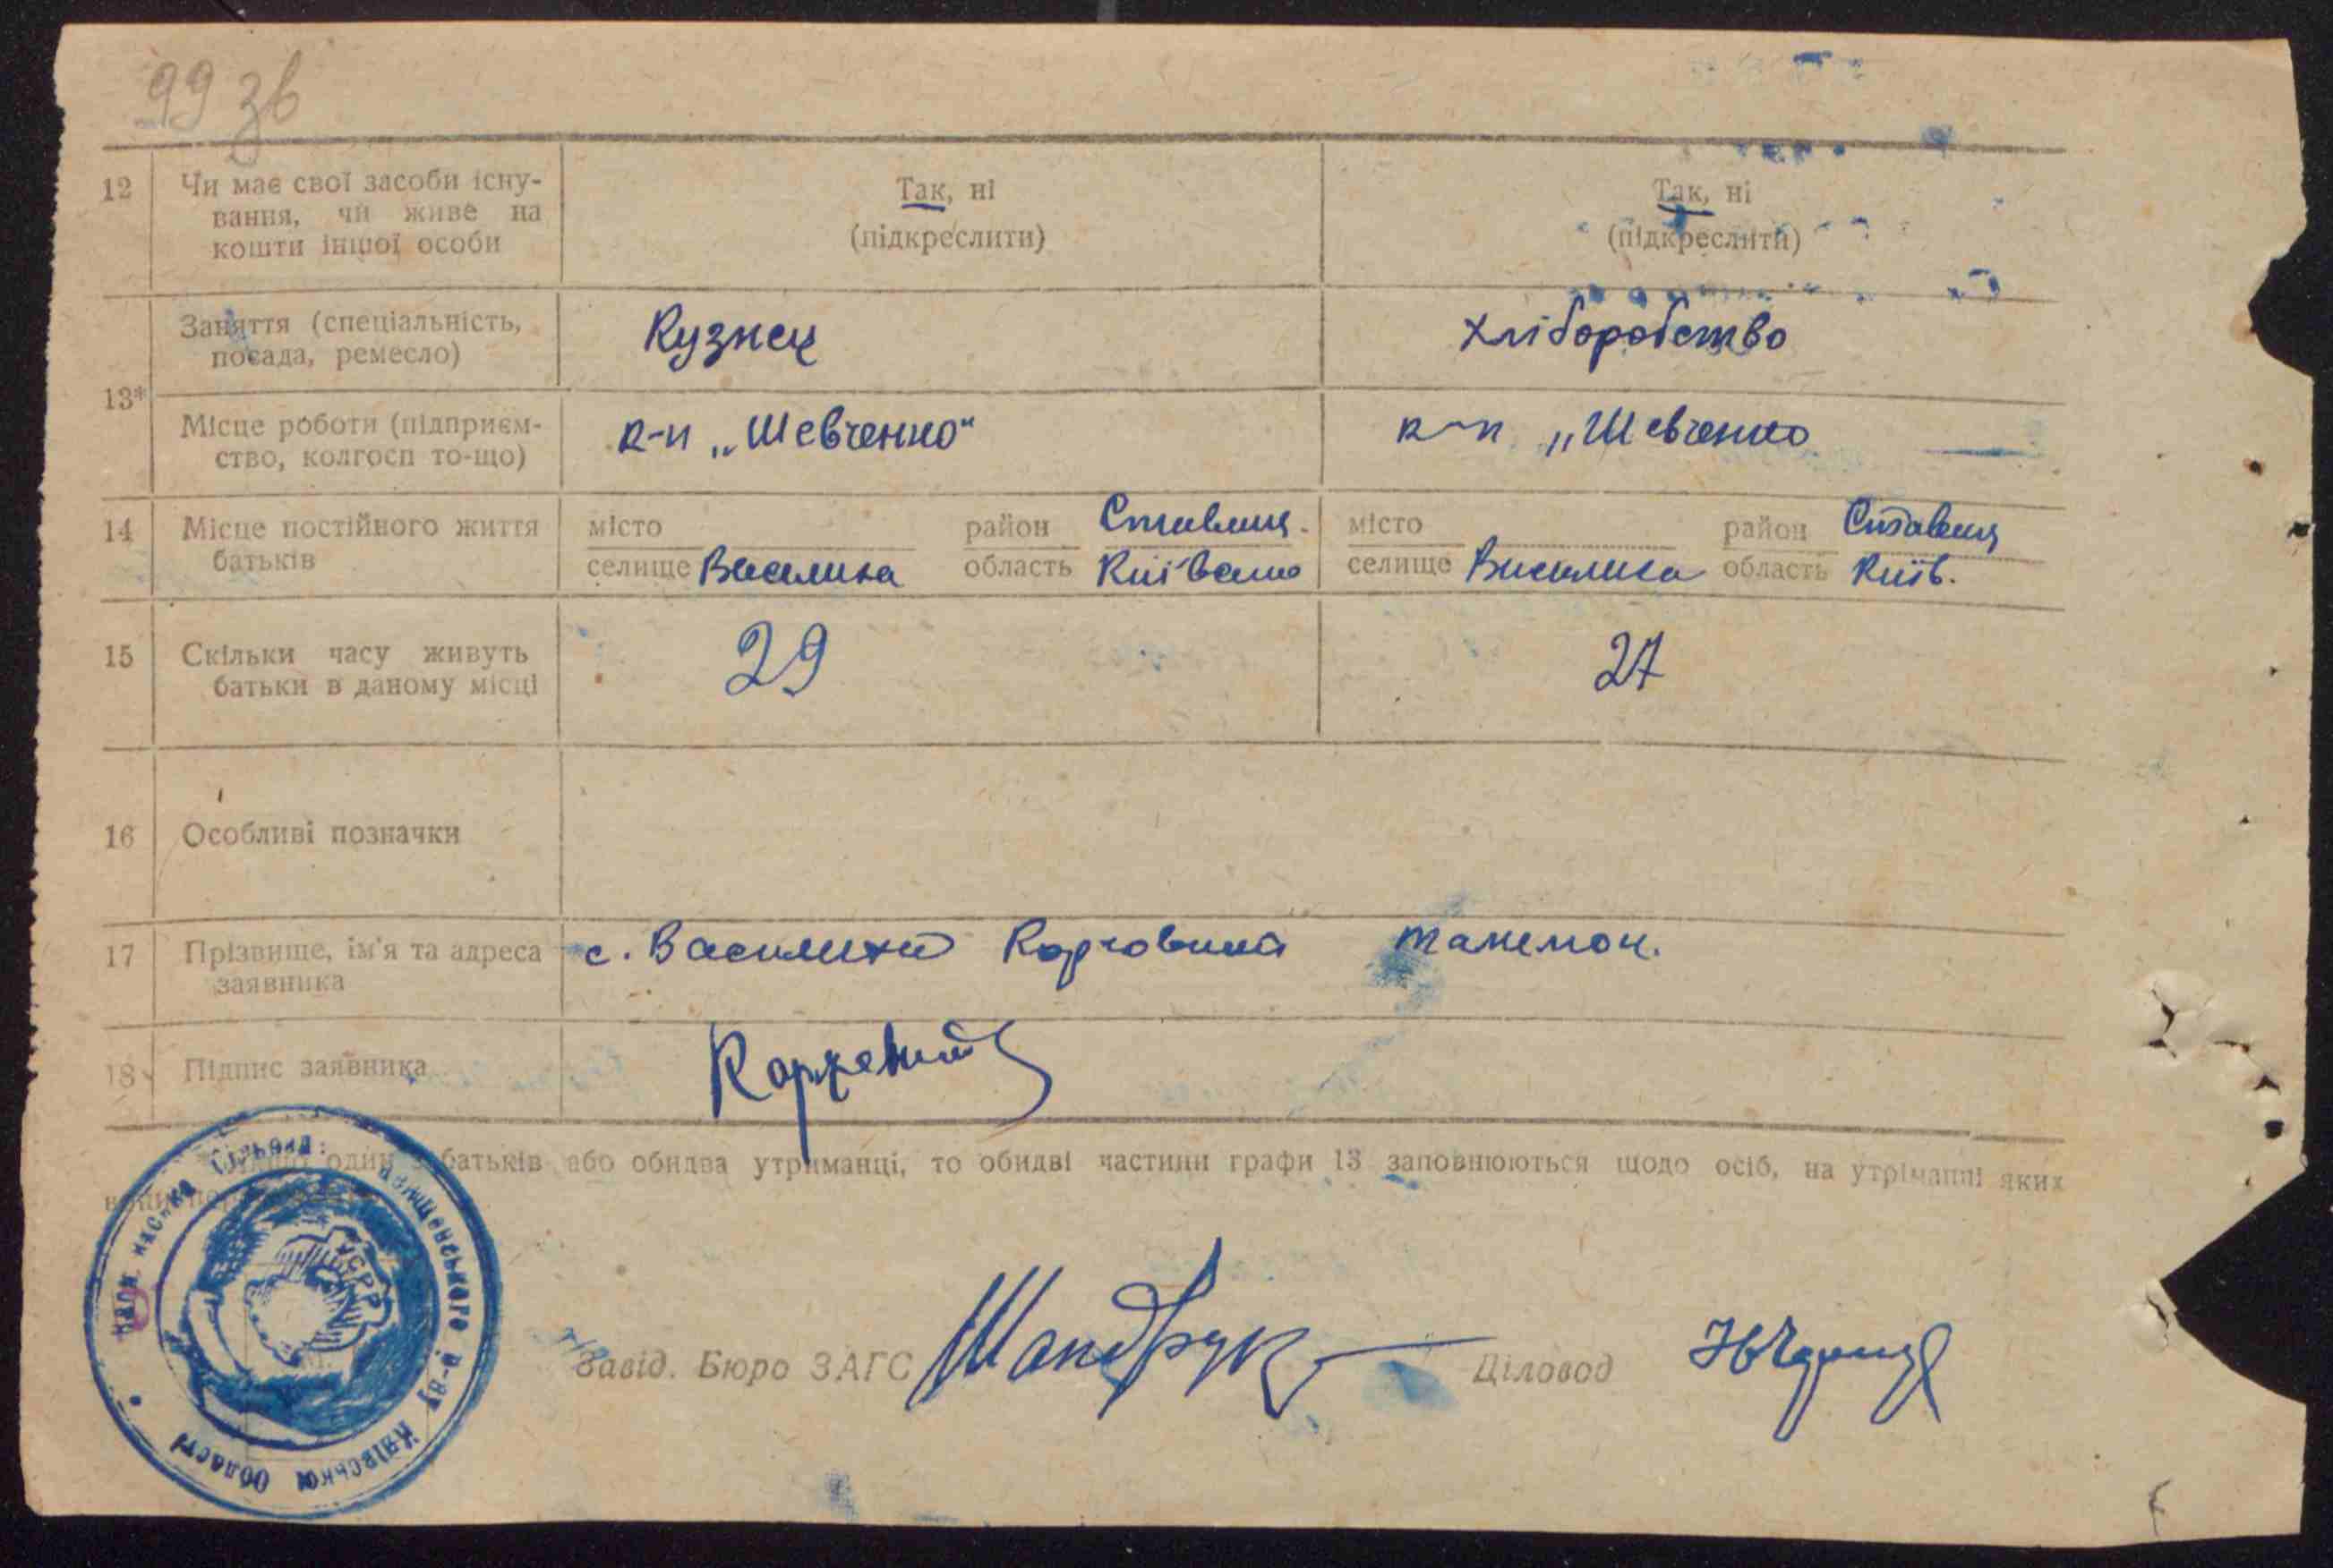 99 зв
12 Чи має свої засоби існу- Так, ні Так, ні
вання, чи живе на
кошти іншої особи (підкреслити) (підкреслити)
Заняття (спеціальність, Кузнец Хліборобство
посада, ремесло)
13*
Місце роботи (підприєм- к-п „Шевченко" к-п „Шевченко
ство, колгосп то-що)
14 Місце постійного життя місто район Ставищ. місто район Ставищ
батьків селище Василиха область область Київ.
15 Скільки часу живуть 29 27
батьки в даному місці
16 Особливі позначки
17 Прізвище, ім'я та адреса с. Василиха
заявника
18 Підпис заявника
один батьків або обидва утриманці, то обидві частини графи 13 заповнюються щодо осіб, на утріманні яких
Сільрад
р-ну Київської Області
УСРР
Завід. Бюро ЗАГС Шандрук Діловод